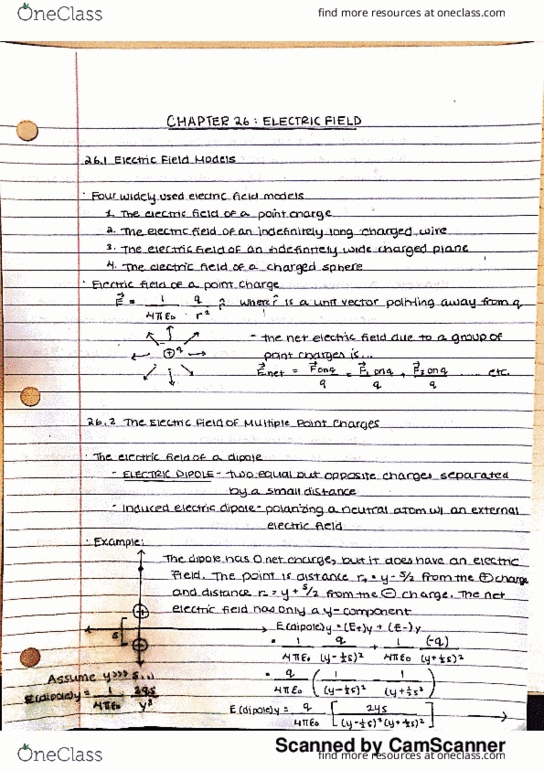 OneClass
find more resources at oneclass.com
CHAPTER 26: ELECTRIC FIELD
26.1 Electric Field Models
· Four widely used electric field models
1. The electric field of a point charge
2. The electric field of an indefinitely long charged wire
3. The electric field of an indefinitely wide charged plane
4. The electric field of a charged sphere
· Electric field of a point charge
E⃗ = 1/4πε₀ · q/r² r̂, where r̂ is a unit vector pointing away from q
⊕ q
- the net electric field due to a group of
point charges is...
E⃗net = F⃗onq/q = F⃗₁ on q/q + F⃗₂ on q/q ..... etc.
26.2 The Electric Field of Multiple Point Charges
· The electric field of a dipole
- ELECTRIC DIPOLE - two equal but opposite charges separated
by a small distance
- Induced electric dipole - polarizing a neutral atom w/ an external
electric field
· Example:
The dipole has 0 net charge, but it does have an electric
field. The point is distance r₊ = y - s/2 from the ⊕ charge
and distance r₋ = y + s/2 from the ⊖ charge. The net
electric field has only a y-component
s
E(dipole)y = (E₊)y + (E₋)y
= 1/4πε₀ q/(y-½s)² + 1/4πε₀ (-q)/(y+½s)²
= q/4πε₀ (1/(y-½s)² - 1/(y+½s)²)
Assume y>>> s...
E(dipole)y = 1/4πε₀ 2qs/y³
E(dipole)y = q/4πε₀ [2ys/(y-½s)²(y+½s)²]
Scanned by CamScanner
OneClass
find more resources at oneclass.com